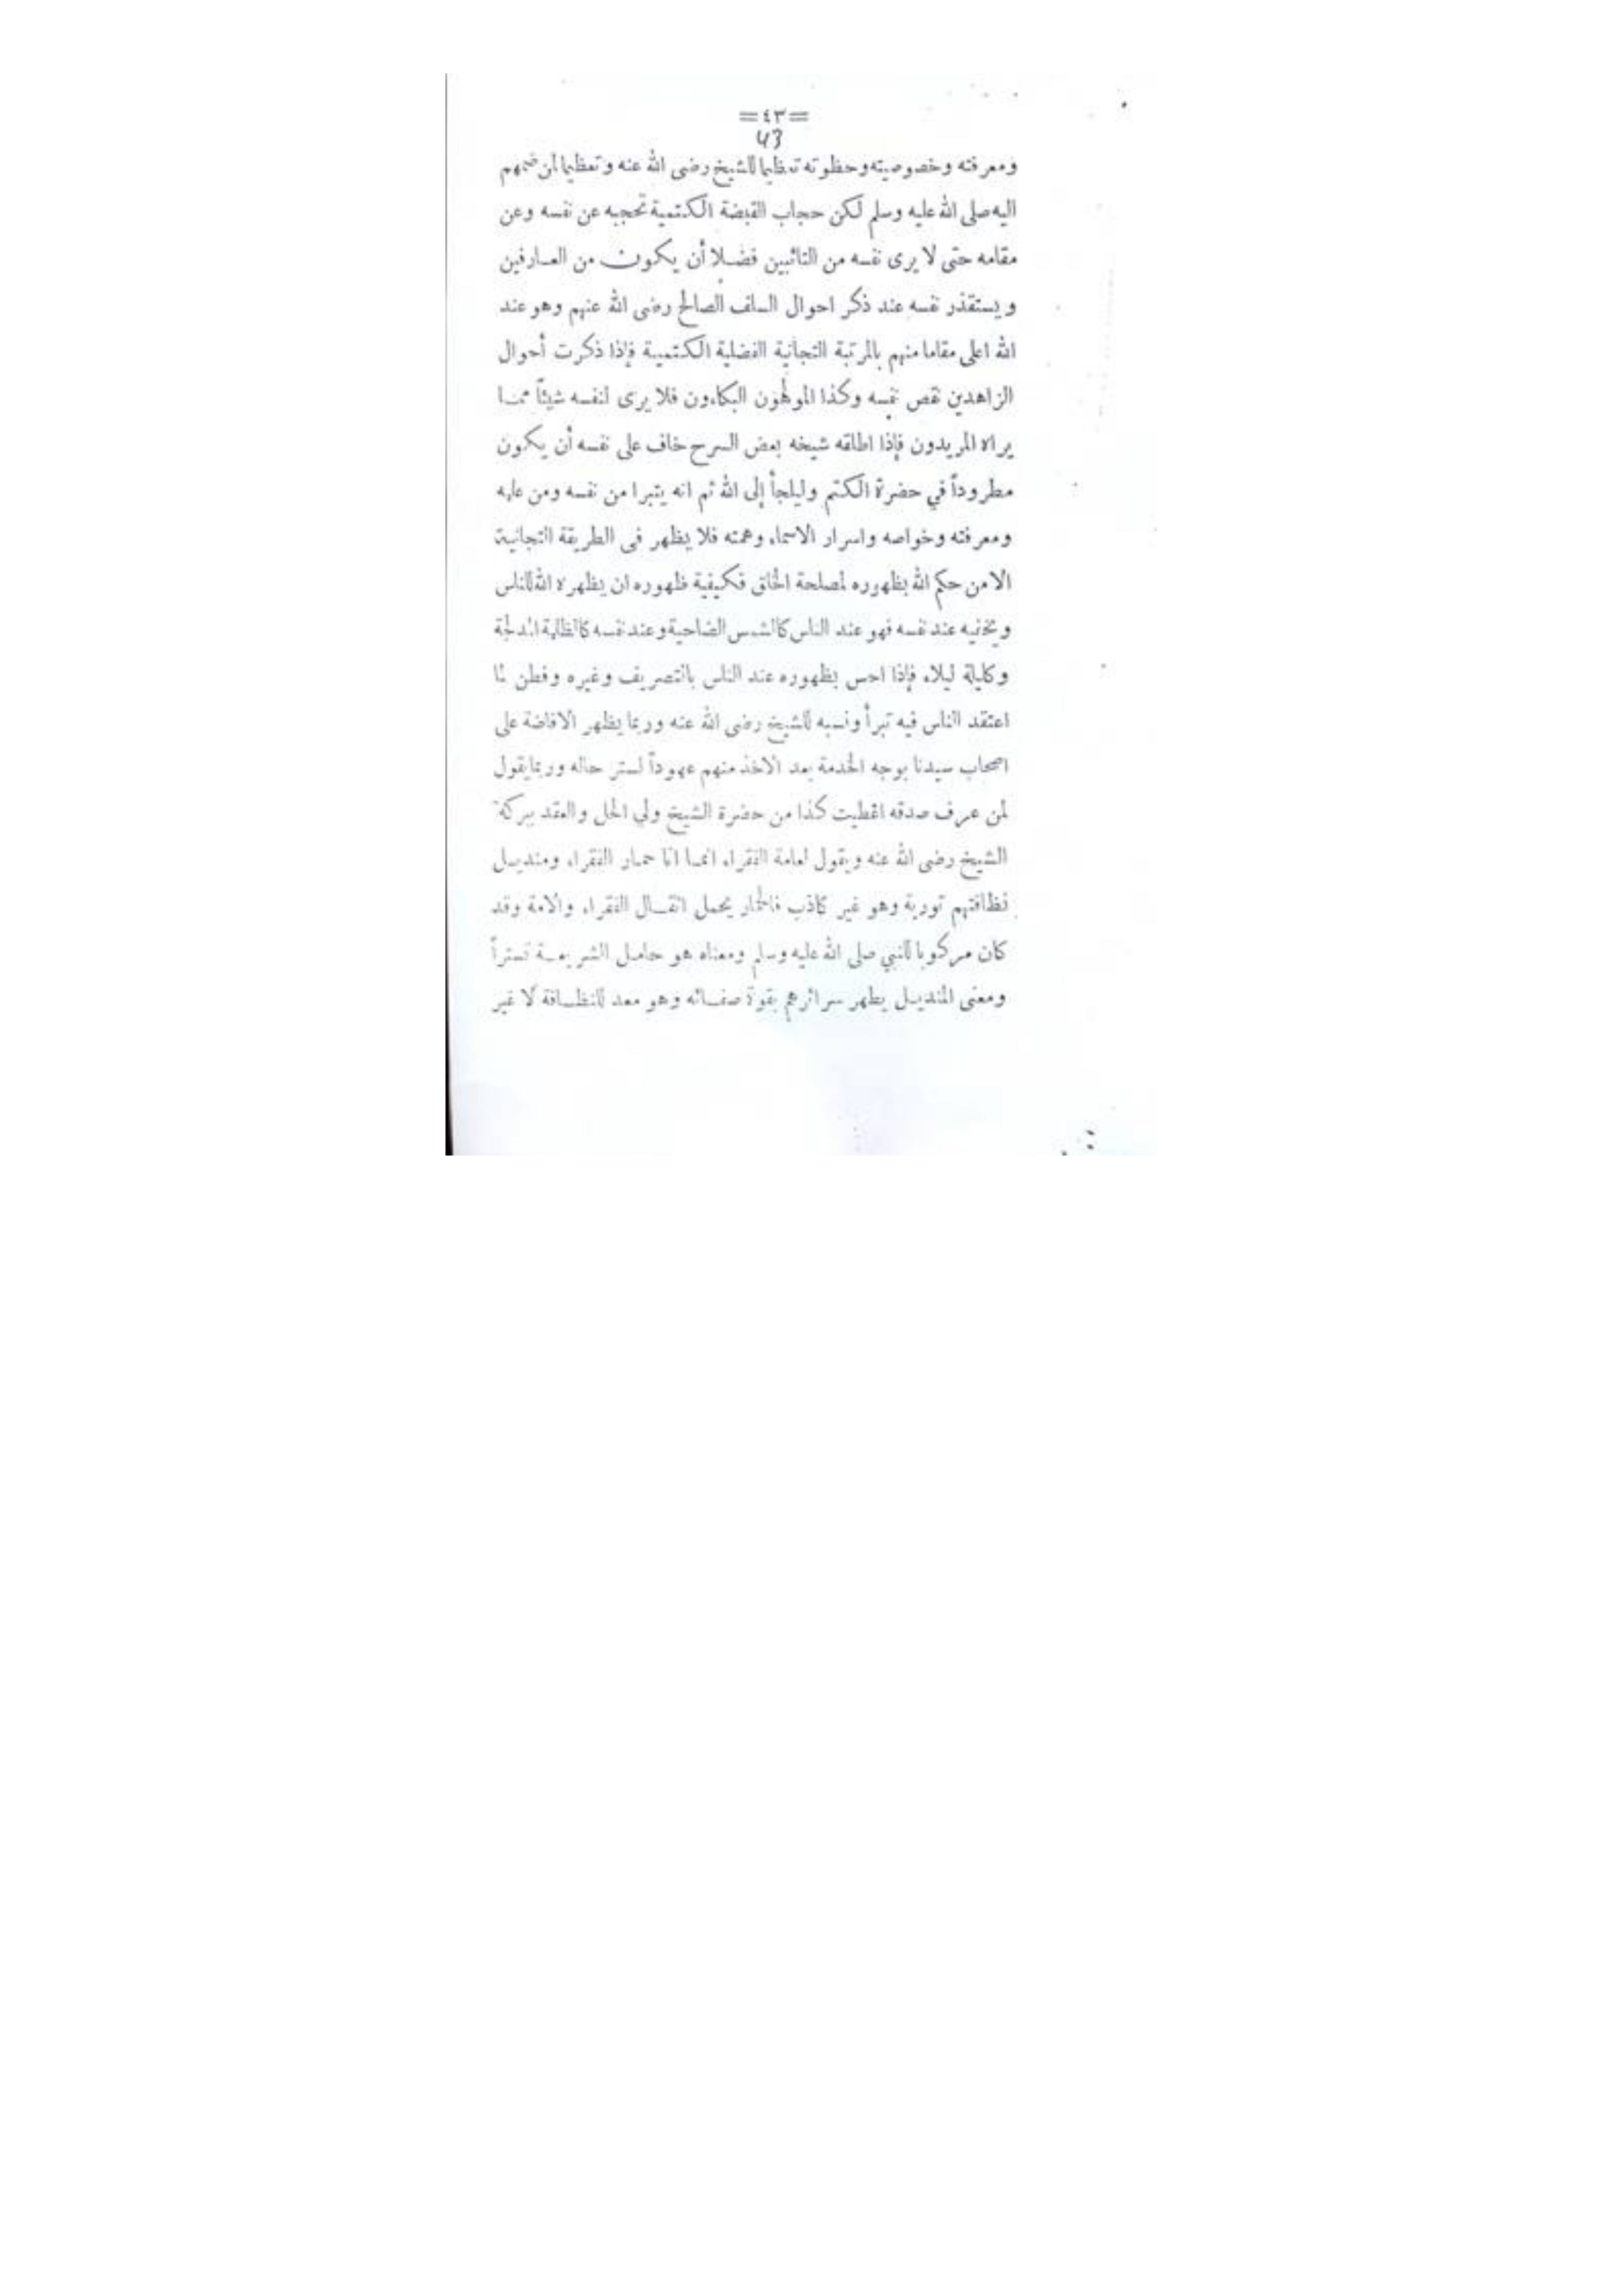 =٤٣=
43
ومعرفته وخصوصيته وحظوته تعظيما للشيخ رضى الله عنه وتعظيما لمن ضمهم
اليه صلى الله عليه وسلم لكن حجاب القبضة الكتمية تحجبه عن نفسه وعن
مقامه حتى لا يرى نفسه من التائبين فضلا أن يكون من العارفين
ويستقذر نفسه عند ذكر احوال السلف الصالح رضى الله عنهم وهو عند
الله اعلى مقاما منهم بالمرتبة التجانية الفضلية الكتمية فإذا ذكرت أحوال
الزاهدين نقص نفسه وكذا المولهون البكاءون فلا يرى لنفسه شيئاً مما
يراه المريدون فإذا اطلقه شيخه بعض السرح خاف على نفسه أن يكون
مطروداً في حضرة الكتم وليلجأ إلى الله ثم انه يتبرا من نفسه ومن علمه
ومعرفته وخواصه واسرار الاسماء وهمته فلا يظهر فى الطريقة التجانية
الا من حكم الله بظهوره لمصلحة الخلق فكيفية ظهوره ان يظهره الله للناس
ويخفيه عند نفسه فهو عند الناس كالشمس الضاحية وعند نفسه كالظلمة المدلجة
وكليلة ليلاء فإذا احس بظهوره عند الناس بالتصريف وغيره وفطن لما
اعتقد الناس فيه تبرأ ونسبه للشيخ رضى الله عنه وربما يظهر الافاضة على
اصحاب سيدنا بوجه الخدمة بعد الاخذ منهم عهوداً لستر حاله وربما يقول
لمن عرف صدقه اعطيت كذا من حضرة الشيخ ولي الحل والعقد ببركة
الشيخ رضى الله عنه ويقول لعامة الفقراء انما انا حمار الفقراء ومنديل
نظافتهم تورية وهو غير كاذب فالحمار يحمل اثقال الفقراء والامة وقد
كان مركوبا للنبي صلى الله عليه وسلم ومعناه هو حامل الشريعة تستراً
ومعنى المنديل يطهر سرائرهم بقوة صفائه وهو معد للنظافة لا غير